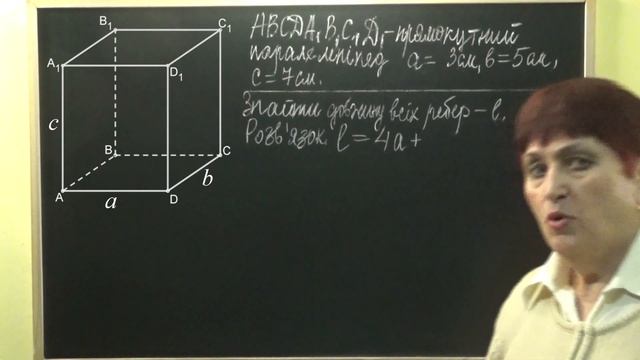 B₁
C₁
A₁
D₁
c
B
C
b
A
a
D
ABCDA₁B₁C₁D₁ - прямокутний
паралелепіпед a = 3см, b = 5см,
c = 7см.
Знайти довжину всіх ребер - l.
Розв'язок. l = 4a +